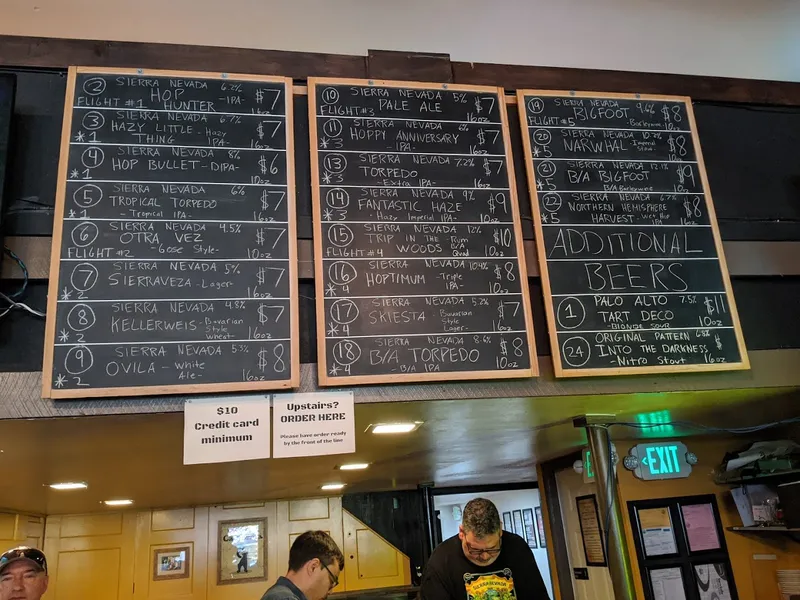 ② SIERRA NEVADA 6.2%
HOP HUNTER -IPA- $7
FLIGHT #1 16oz
③ SIERRA NEVADA 6.7%
HAZY LITTLE THING - Hazy IPA- $7
*1 16oz
④ SIERRA NEVADA 8%
HOP BULLET -DIPA- $6
*1 10oz
⑤ SIERRA NEVADA 6%
TROPICAL TORPEDO $7
*1 - Tropical IPA- 16oz
⑥ SIERRA NEVADA 4.5%
OTRA VEZ $7
FLIGHT #2 -Gose Style- 16oz
⑦ SIERRA NEVADA 5%
SIERRAVEZA -Lager- $7
*2 16oz
⑧ SIERRA NEVADA 4.8%
KELLERWEIS -Bavarian Style Wheat- $7
*2 16oz
⑨ SIERRA NEVADA 5.3%
OVILA -White Ale- $8
*2 16oz
⑩ SIERRA NEVADA 5%
PALE ALE $7
FLIGHT #3 16oz
⑪ SIERRA NEVADA 6%
HOPPY ANNIVERSARY $7
*3 -IPA- 16oz
⑬ SIERRA NEVADA 7.2%
TORPEDO $7
*3 -Extra IPA- 16oz
⑭ SIERRA NEVADA 9%
FANTASTIC HAZE $9
*3 Hazy Imperial IPA- 10oz
⑮ SIERRA NEVADA 12%
TRIP IN THE WOODS - Rum B/A Quad $10
FLIGHT #4 10oz
⑯ SIERRA NEVADA 10.4%
HOPTIMUM -Triple IPA- $8
*4 10oz
⑰ SIERRA NEVADA 5.2%
SKIESTA -Bavarian Style Lager- $7
*4 16oz
⑱ SIERRA NEVADA 8.6%
B/A TORPEDO $8
*4 -B/A IPA 10oz
⑲ SIERRA NEVADA 9.6%
BIGFOOT $8
FLIGHT #5 -Barleywine 10oz
⑳ SIERRA NEVADA 10.2%
NARWHAL -Imperial Stout- $8
*5 10oz
㉑ SIERRA NEVADA 12.1%
B/A BIGFOOT $9
*5 B/A Barleywine 10oz
㉒ SIERRA NEVADA 6.7%
NORTHERN HEMISPHERE $8
*5 HARVEST -Wet Hop IPA 16oz
ADDITIONAL
BEERS
① PALO ALTO 7.5% $11
TART DECO
-BLONDE SOUR 10oz
㉔ ORIGINAL PATTERN 6.8%
INTO THE DARKNESS $
-NITRO STOUT 16oz
$10
Credit card
minimum
Upstairs?
ORDER HERE
Please have order ready
by the front of the line
EXIT
SIERRA NEVADA